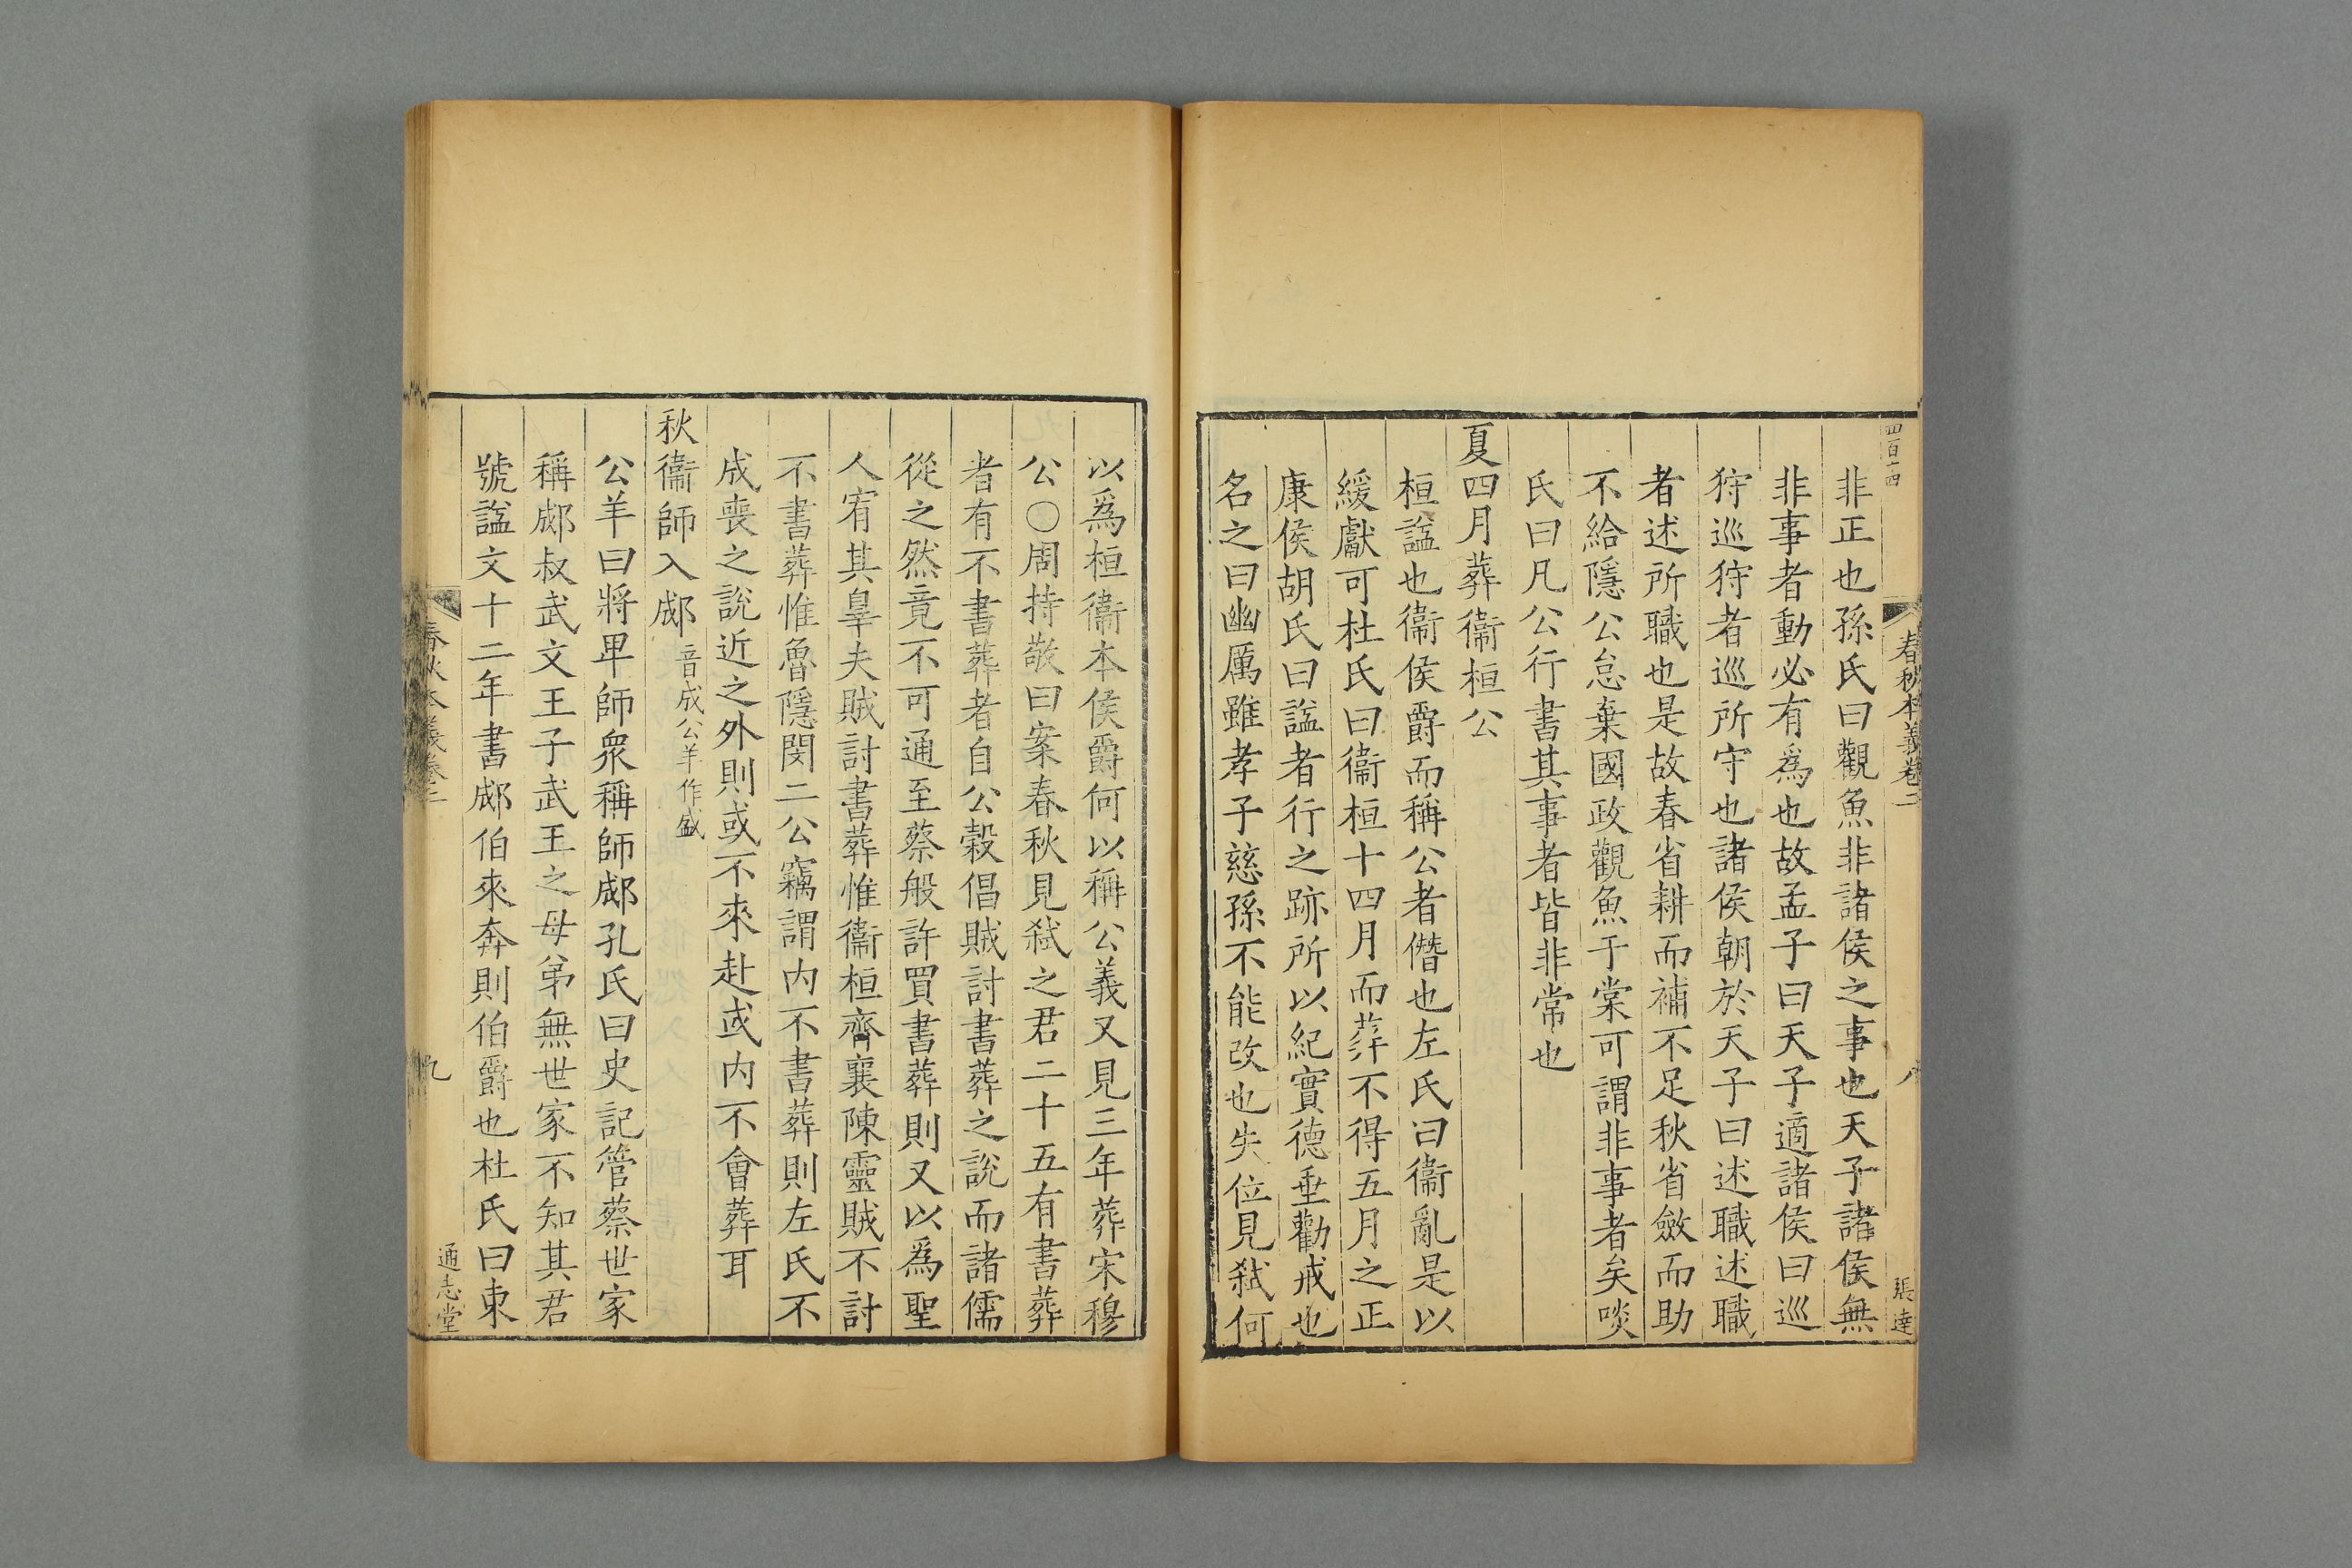 四百十四
春秋本義卷二
張達
非正也孫氏曰觀魚非諸侯之事也天子諸侯無
非事者動必有爲也故孟子曰天子適諸侯曰巡
狩巡狩者巡所守也諸侯朝於天子曰述職述職
者述所職也是故春省耕而補不足秋省斂而助
不給隱公怠棄國政觀魚于棠可謂非事者矣啖
氏曰凡公行書其事者皆非常也
夏四月葬衞桓公
桓諡也衞侯爵而稱公者僭也左氏曰衞亂是以
緩獻可杜氏曰衞桓十四月而葬不得五月之正
康侯胡氏曰諡者行之跡所以紀實德垂勸戒也
名之曰幽厲雖孝子慈孫不能改也失位見弑何
以爲桓衞本侯爵何以稱公義又見三年葬宋穆
公○周持敬曰案春秋見弑之君二十五有書葬
者有不書葬者自公穀倡賊討書葬之說而諸儒
從之然竟不可通至蔡般許買書葬則又以爲聖
人宥其辠夫賊討書葬惟衞桓齊襄陳靈賊不討
不書葬惟魯隱閔二公竊謂内不書葬則左氏不
成喪之說近之外則或不來赴或内不會葬耳
秋衞師入郕音成公羊作盛
公羊曰將卑師衆稱師郕孔氏曰史記管蔡世家
稱郕叔武文王子武王之母弟無世家不知其君
號諡文十二年書郕伯來奔則伯爵也杜氏曰東
春秋本義卷二
九
通志堂